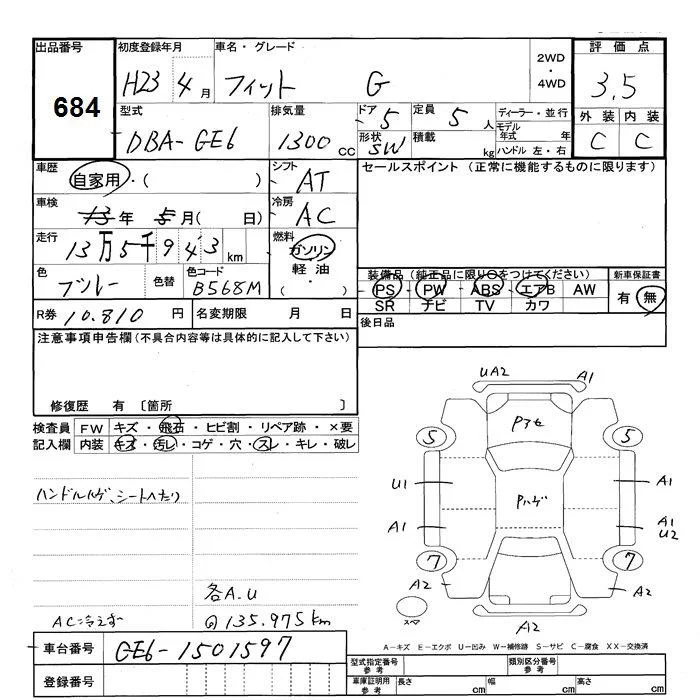 出品番号 初度登録年月 車名・グレード 2WD・4WD 評価点
684 H23 4月 フィット G 3.5
型式 排気量 ドア 定員 ディーラー・並行 外装 内装
DBA-GE6 1300cc 5 5人 モデル年式 年 C C
形状 SW 積載 kg ハンドル 左・右
車歴 自家用・( ) シフト AT セールスポイント (正常に機能するものに限ります)
車検 13年 5月( 日) 冷房 AC
走行 13万5千943km 燃料 ガソリン・軽油・( )
装備品 (純正品に限り○をつけてください) 新車保証書
色 ブルー 色替 色コード B568M PS・PW・ABS・エアB AW 有・無
SR ナビ TV カワ
R券 10.810円 名変期限 月 日 後日品
注意事項申告欄(不具合内容等は具体的に記入して下さい)
修復歴 有 〔箇所 〕
検査員 FW キズ・飛石・ヒビ割・リペア跡・×要
記入欄 内装 キズ・汚レ・コゲ・穴・スレ・キレ・破レ
ハンドルハゲ、シートヘたり
各A.U
AC冷えず @135.975km
UA2 A1
Pアセ
5 5
U1 Pハゲ A1
A1 A1
U2
7 7
A2 A2
スペア A2
A-キズ E-エクボ U-凹み W-補修跡 S-サビ C-腐食 XX-交換済
車台番号 GE6-1501597
型式指定番号 参考 類別区分番号 参考
登録番号 車庫証明用 参考 長さ cm 幅 cm 高さ cm